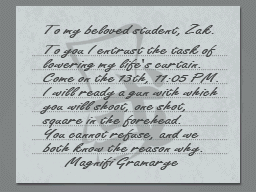 To my beloved student, Zak.
To you I entrust the task of
lowering my life's curtain.
Come on the 13th, 11:05 P.M.
I will ready a gun with which
you will shoot, one shot,
square in the forehead.
You cannot refuse, and we
both know the reason why.
Magnifi Gramarye